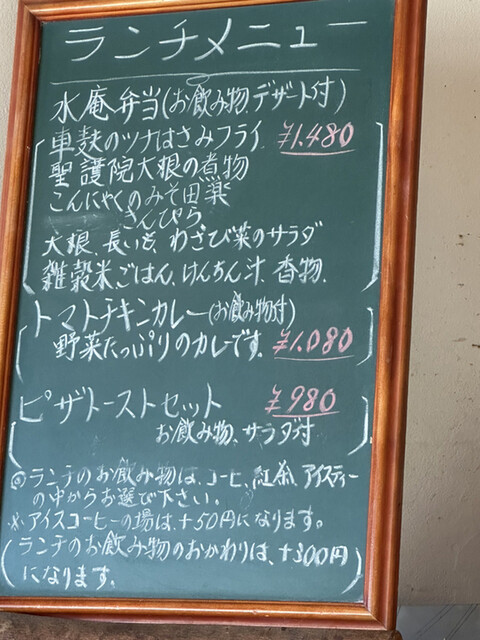 ランチメニュー
水庵弁当(お飲み物、デザート付)
車麸のツナはさみフライ ¥1.480
聖護院大根の煮物
こんにゃくのみそ田楽
きんぴら
大根、長いも、わさび菜のサラダ
雑穀米ごはん、けんちん汁、香物、
トマトチキンカレー(お飲み物付)
野菜たっぷりのカレーです。 ¥1.080
ピザトーストセット ¥980
お飲み物、サラダ付
◎ランチのお飲み物は、コーヒ、紅茶、アイスティー
の中からお選び下さい。
※アイスコーヒーの場は、+50円になります。
(ランチのお飲み物のおかわりは、+300円
になります。)